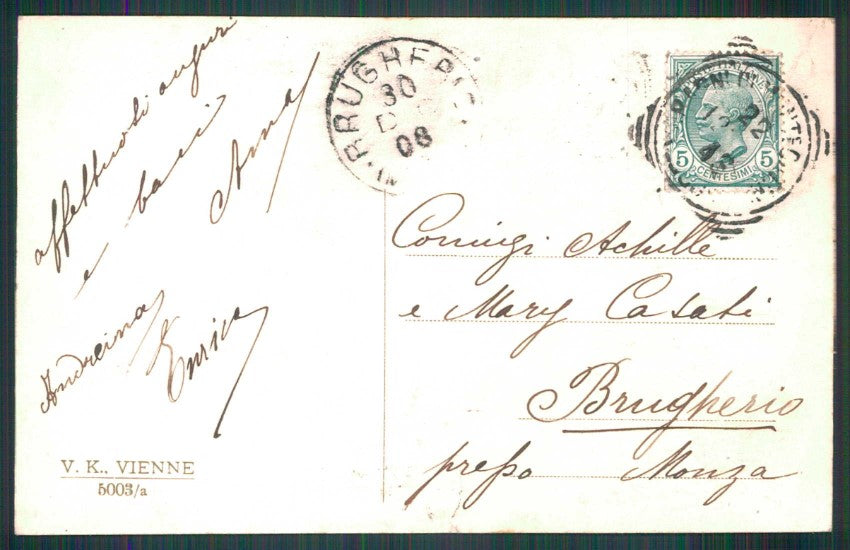 affettuosi auguri
e baci
Anna
Andreina
Enrica
V. K., VIENNE
5003/a
BRUGHERIO
30
08
5 5
CENTESIMI
Coniugi Achille
e Mary Casati
Brugherio
presso Monza